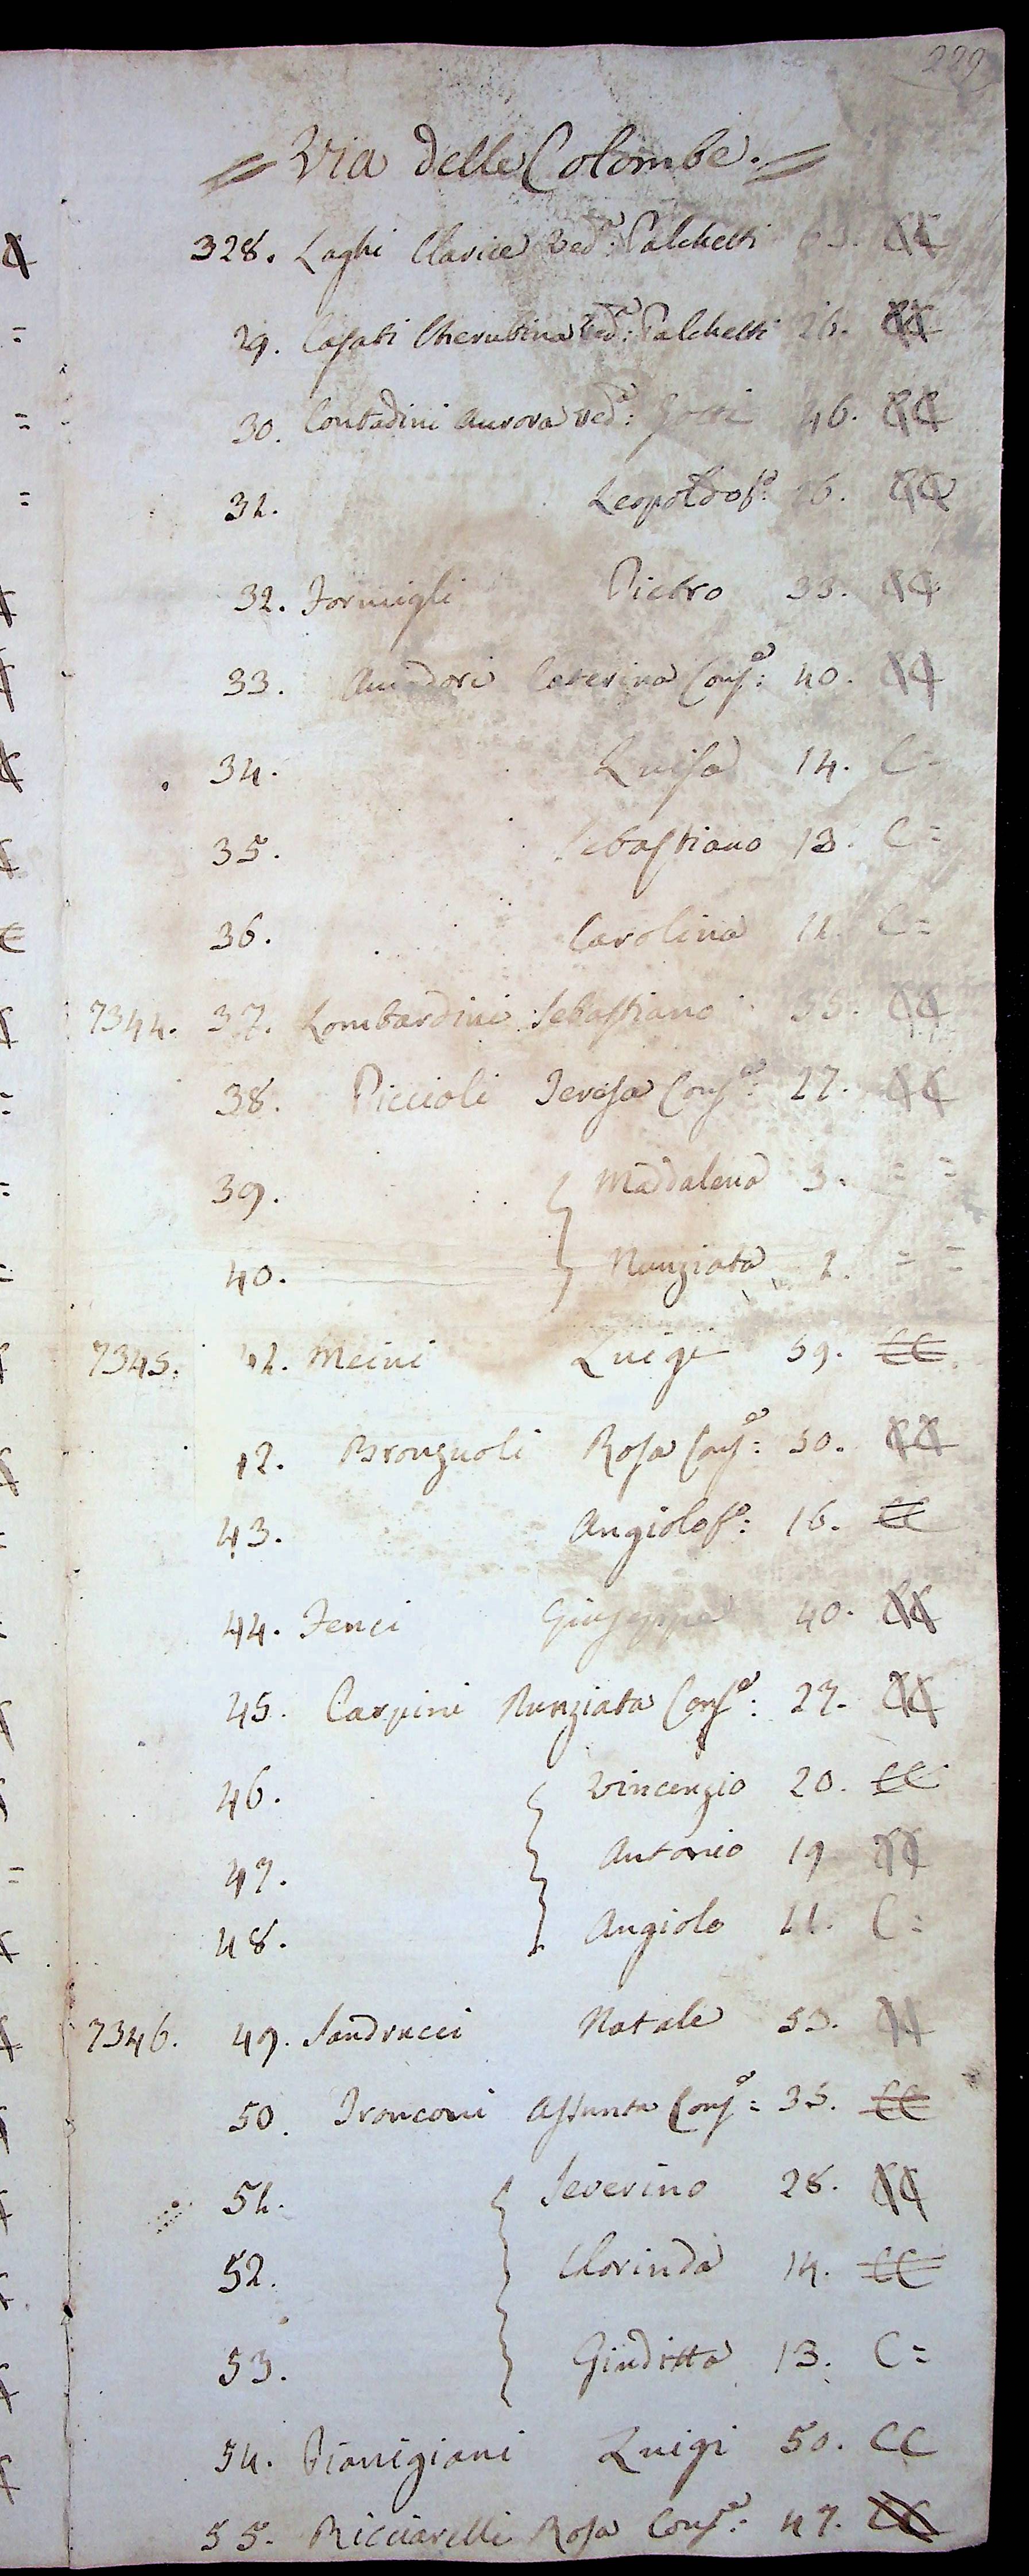 229
= Via delle Colombe. =
328. Laghi Clarice Ved.a: Palchetti 63. CC
29. Casati Cherubina Ved.a: Palchetti 26. CC
30. Contadini Aurora Ved.a: 46. CC
31. Leopoldo f.o: 16. CC
32. Formigli Pietro 33. CC
33. Amadori Caterina Cons.e: 40. CC
34. Luisa 14. C=
35. Sebastiano 13. C=
36. Carolina 11. C=
7344. 37. Lombardini Sebastiano 35. CC
38. Piccioli Teresa Cons.e: 27. CC
39. { Maddalena 3. = =
40. Nunziata 1. = =
7345. 41. Meini Luigi 59. CC
42. Brongnoli Rosa Cons.e: 50. CC
43. Angiolo f.o: 16. CC
44. Tenci Giuseppe 40. CC
45. Carpini Nunziata Cons.e: 27. CC
46. { Vincenzio 20. CC
47. Antonio 19 CC
48. Angiolo 11. C=
7346. 49. Sandrucci Natale 53. CC
50. Tronconi Assunta Cons.e: 35. CC
51. { Severino 28. CC
52. Clorinda 14. CC
53. Giuditta 13. C=
54. Pianigiani Luigi 50. CC
55. Ricciarelli Rosa Cons.e: 47. CC